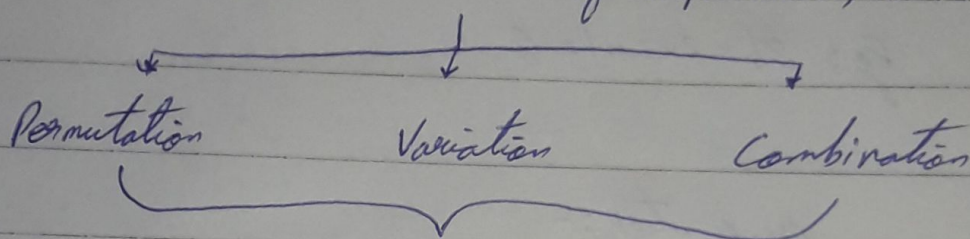 Permutation Variation Combination